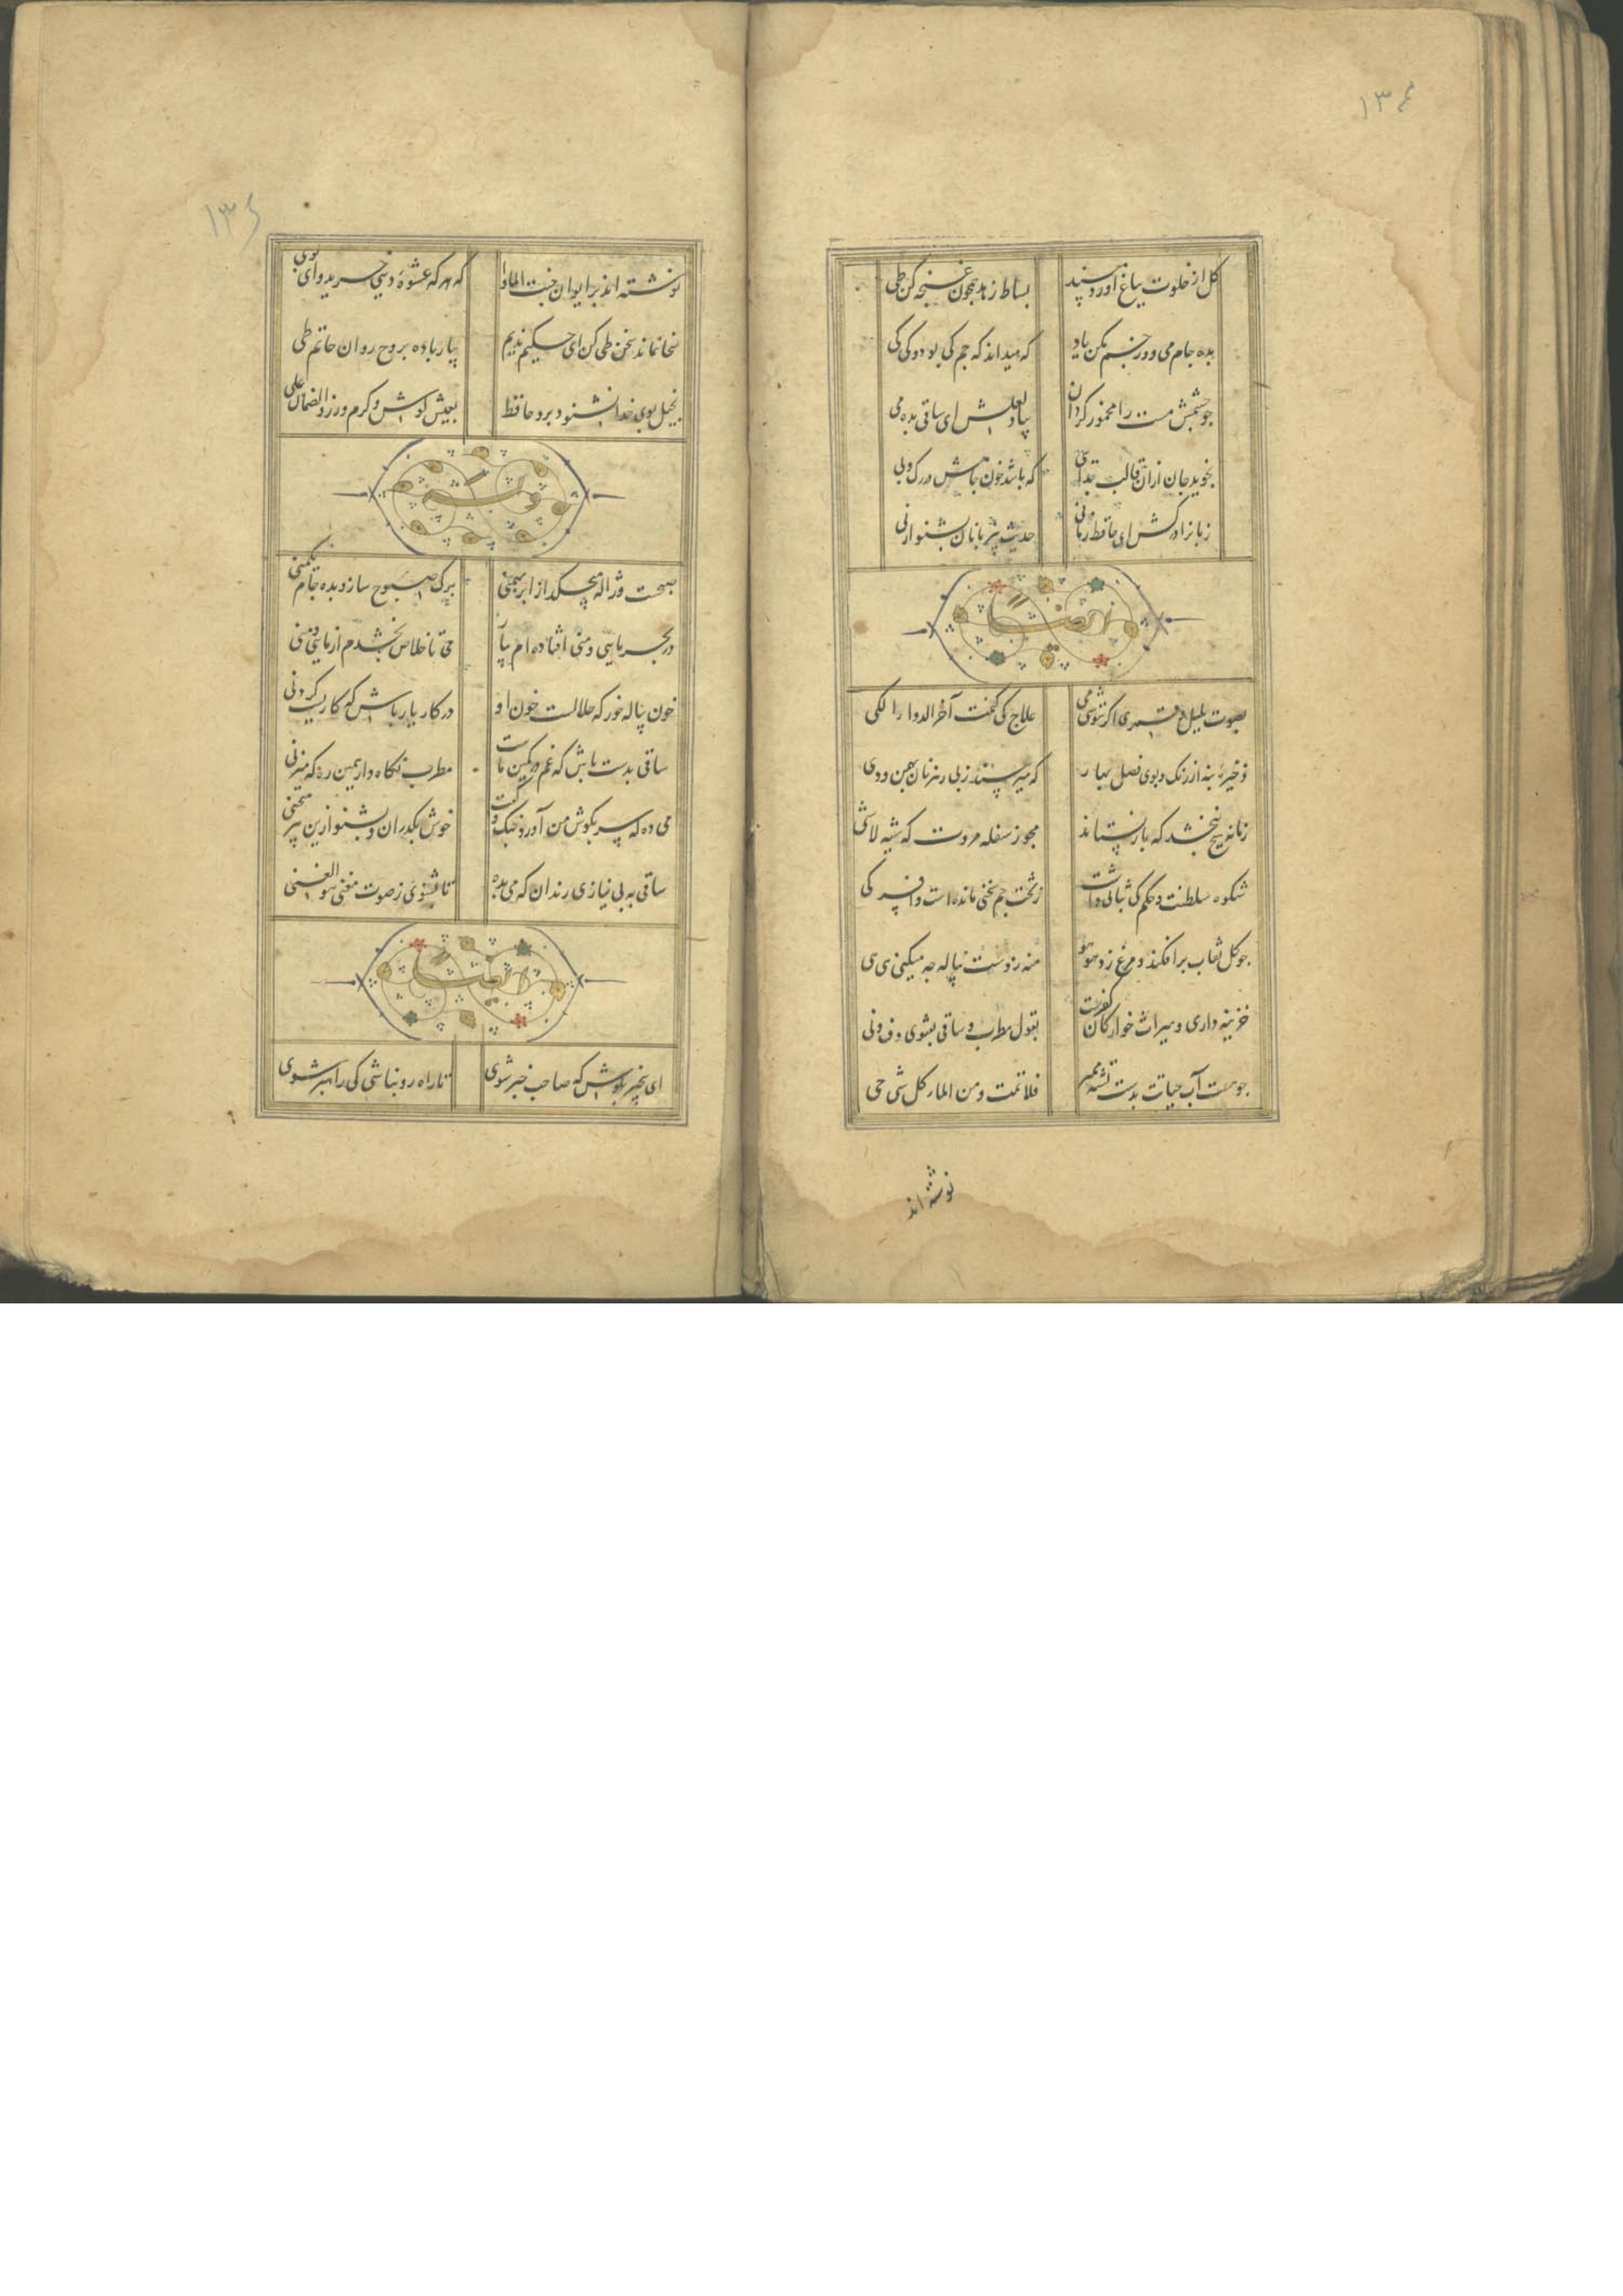 ۱۳۴
گل از خلوت بباغ آورد مسند بساط زهد همچون غنچه کن طی
بده جام می و از جم مکن یاد که میداند که جم کی بود و کی کی
چو چشمش مست را مخمور مگذار بیاد لعلش ای ساقی بده می
نجوید جان از آن قالب جدایی که باشد خون جامش در رگ و پی
زبانت درکش ای حافظ زمانی حدیث بی زبانان بشنو از نی
ایضا
بصوت بلبل و قمری اگر ننوشی می علاج کی کنمت آخر الدواء الکی
ذخیره بنه از رنک و بوی فصل بهار که میرسند ز پی رهزنان بهمن و دی
زمانه هیچ نبخشد که باز نستاند مجو ز سفله مروت که شیئه لا شی
شکوه سلطنت و حکم کی ثباتی داشت ز تخت جم سخنی مانده است و افسر کی
چو کل نقاب برافکند و مرغ زد هوهو منه ز دست پیاله چه میکنی هی هی
خزینه داری و میراث خوارکان کفرست بقول مطرب و ساقی بفتوی دف و نی
چو هست آب حیاتت بدست تشنه ممیر فلا تمت و من الماء کل شی حی
نوشته اند
۱۳۵
نوشته اند بر ایوان جنت الماوا که هر که عشوه دنیی خرید وای بوی
سخا نماند سخن طی کن ای حکیم ندیم بیار باده بروح روان حاتم طی
بخیل بوی خدا نشنود برو حافظ بعیش کوش و کرم ورز و الضمان علی
صبحست و ژاله میچکد از ابر بهمنی برک صبوح ساز و بده جام یکمنی
در بحر مایی و منی افتاده ام بیار می تا خلاص بخشدم از مایی و منی
خون پیاله خور که حلالست خون او در کار یار باش که کاریست کردنی
ساقی بدست باش که غم در کمین ماست مطرب نکاه دار همین ره که میزنی
می ده که سر بکوش من آورد چنک و کفت خوش بکذران و بشنو ازین پیر منحنی
ساقی به بی نیازی رندان که می بده تا بشنوی ز صوت مغنی هو الغنی
ایضا
ای بیخبر بکوش که صاحب خبر شوی تا راه رو نباشی کی راهبر شوی